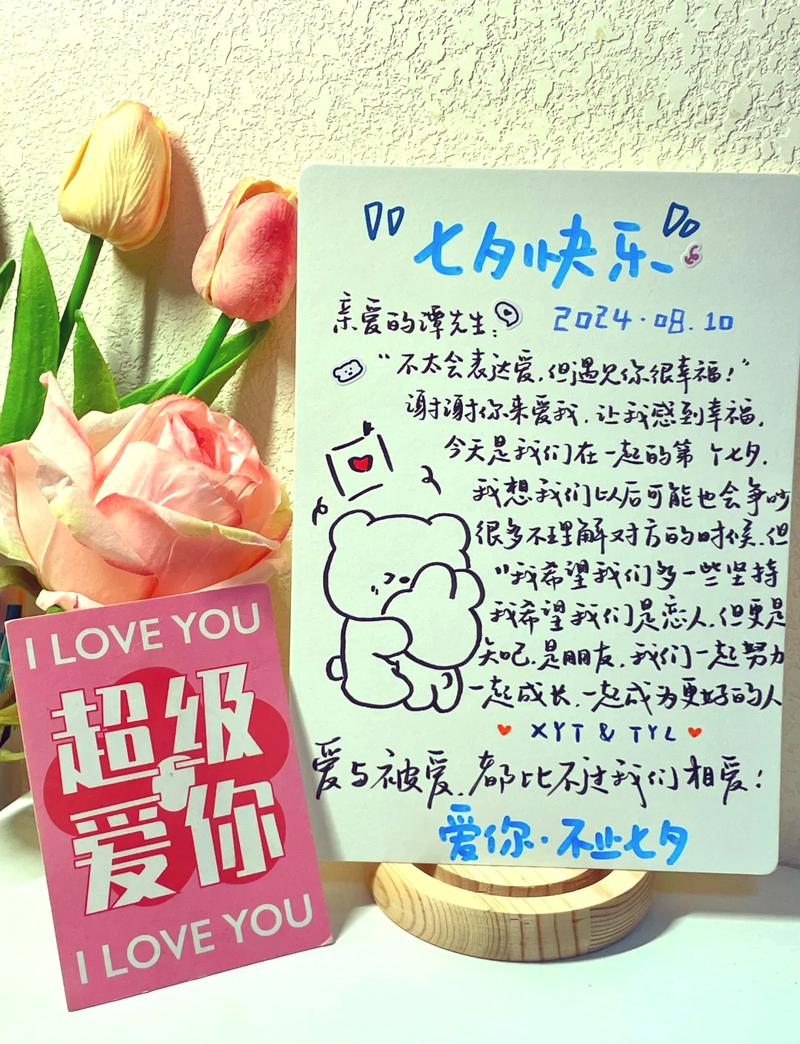 七夕快乐
亲爱的谭先生：
2024.08.10
“不太会表达爱，但遇见你很幸福！”
谢谢你来爱我，让我感到幸福，
今天是我们在一起的第 个七夕，
我想我们以后可能也会争吵
很多不理解对方的时候，但
“我希望我们多一些坚持
我希望我们是恋人，但更是
知己，是朋友，我们一起努力
一起成长，一起成为更好的人
XYT & TYL
爱与被爱，都比不过我们相爱！
爱你·不止七夕
I LOVE YOU
超级
爱你
I LOVE YOU